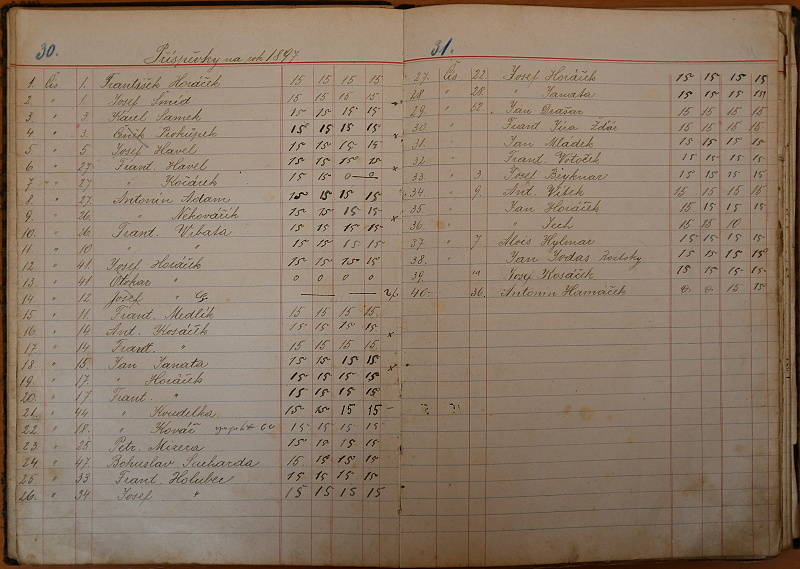 30.
Příspěvky na rok 1897
1. Čís 1. Frantisek Horáček 15 15 15 15
2 " 1. Josef Šmíd 15 15 15 15
3. " 3. Karel Samek 15 15 15 15
4 " 3. Prokůpek 15 15 15 15
5 " 5 Josef Havel 15 15 15 15
6 " 27 Frant. Havel 15 15 15 15
7 " 27 " 15 15 0 0
8 " 27. Antonín Adam 15 15 15 15
9. " 26. " 15 15 15 15
10. " 26 Frant. 15 15 15 15
11. " 10 " " 15 15 15 15
12 " 41. Josef Horáček 15 15 15 15
13. " 41 Otokar " 0 0 0 0
14 " 12 Josef "
15 " 11 Frant. Medlík 15 15 15 15
16 " 14 Ant. Kosáček 15 15 15 15
17 " 14 Frant. " 15 15 15 15
18 " 15. Jan Janata 15 15 15 15
19. " 17. " Horáček 15 15 15 15
20. " 17 Frant. " 15 15 15 15
21. " 44 " Koudelka 15 15 15 15
22 " 18. " Kovář 15 15 15 15
23 " 25 Petr. Mizera 15 15 15 15
24. " 47. Bohuslav Sucharda 15 15 15 15
25 " 33 Frant. Holubec 15 15 15 15
26. " 34 Josef " 15 15 15 15
31.
27. Čís 22. Josef Horáček 15 15 15 15
28 " 28. " Janata 15 15 15 15
29. " Jan 15 15 15 15
30 " Frant. Jíra 15 15 15 15
31. " Jan Mládek 15 15 15 15
32. " Frant. Votoček 15 15 15 15
33. " 3 Josef 15 15 15 15
34. " 9. Ant. 15 15 15 15
35 " Jan Horáček 15 15 15 15
36. " " 15 15 10
37. " 7 Alois Hylmar 15 15 15 15
38. " Jan 15 15 15 15
39. " Josef Kosáček 15 15 15 15
40. 36. Antonín Hamáček 15 15